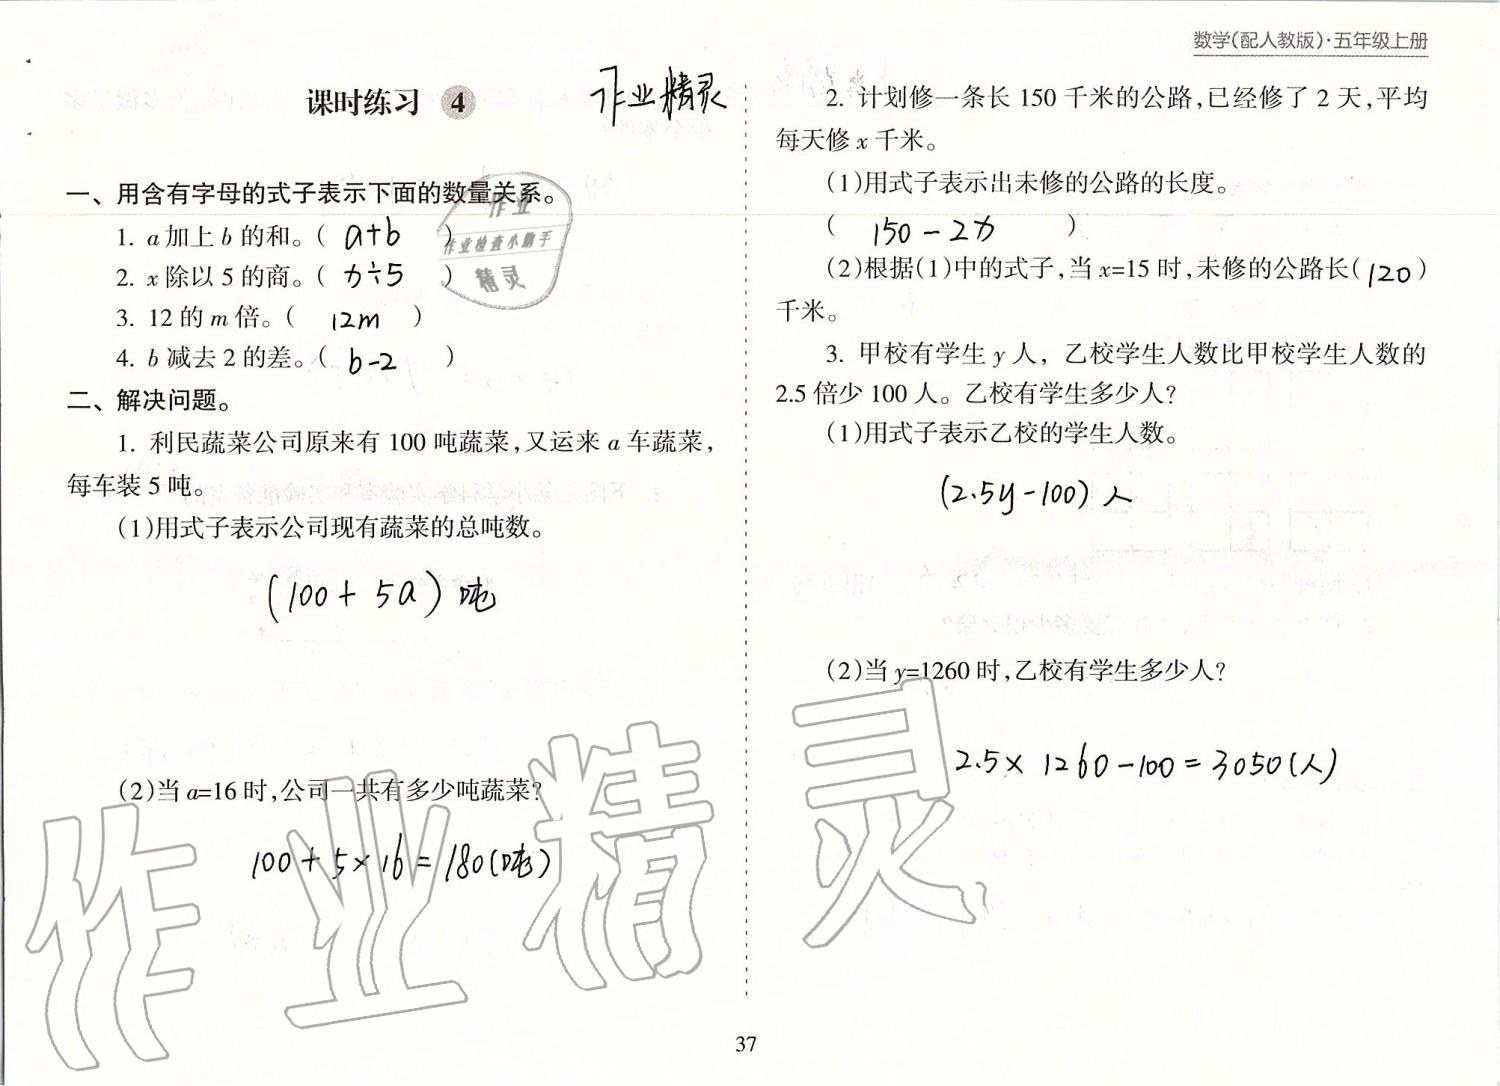 数学(配人教版)·五年级上册
课时练习 4
作业精灵
一、用含有字母的式子表示下面的数量关系。
1. a加上b的和。( a+b )
2. x除以5的商。( x÷5 )
3. 12的m倍。( 12m )
4. b减去2的差。( b-2 )
二、解决问题。
1. 利民蔬菜公司原来有100吨蔬菜,又运来a车蔬菜,
每车装5吨。
(1)用式子表示公司现有蔬菜的总吨数。
(100+5a)吨
(2)当a=16时,公司一共有多少吨蔬菜?
100+5×16=180(吨)
2. 计划修一条长150千米的公路,已经修了2天,平均
每天修x千米。
(1)用式子表示出未修的公路的长度。
( 150-2x )
(2)根据(1)中的式子,当x=15时,未修的公路长(120)
千米。
3. 甲校有学生y人,乙校学生人数比甲校学生人数的
2.5倍少100人。乙校有学生多少人?
(1)用式子表示乙校的学生人数。
(2.5y-100)人
(2)当y=1260时,乙校有学生多少人?
2.5×1260-100=3050(人)
作业
作业检查小助手
精灵
作业精灵
37